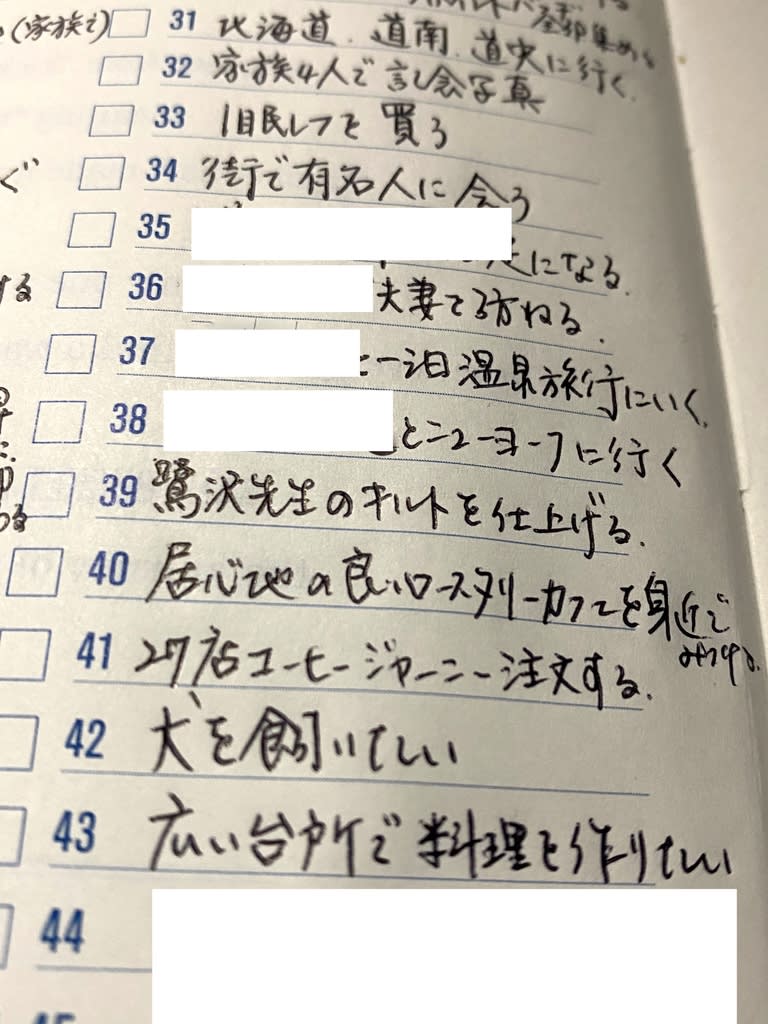 全部集める
(家族で) 31 北海道、道南、道央に行く。
32 家族4人で記念写真
33 1眼レフを買う
34 街で有名人に会う
35 になる。
ぐ
36 夫妻を訪ねる。
する
37 と一泊温泉旅行にいく。
38 とニューヨークに行く
39 鷺沢先生のキルトを仕上げる。
40 居心地の良いロースタリーカフェを身近で
みつける。
41 27店コーヒージャーニー注文する。
42 犬を飼いたい
43 広い台所で料理を作りたい
44